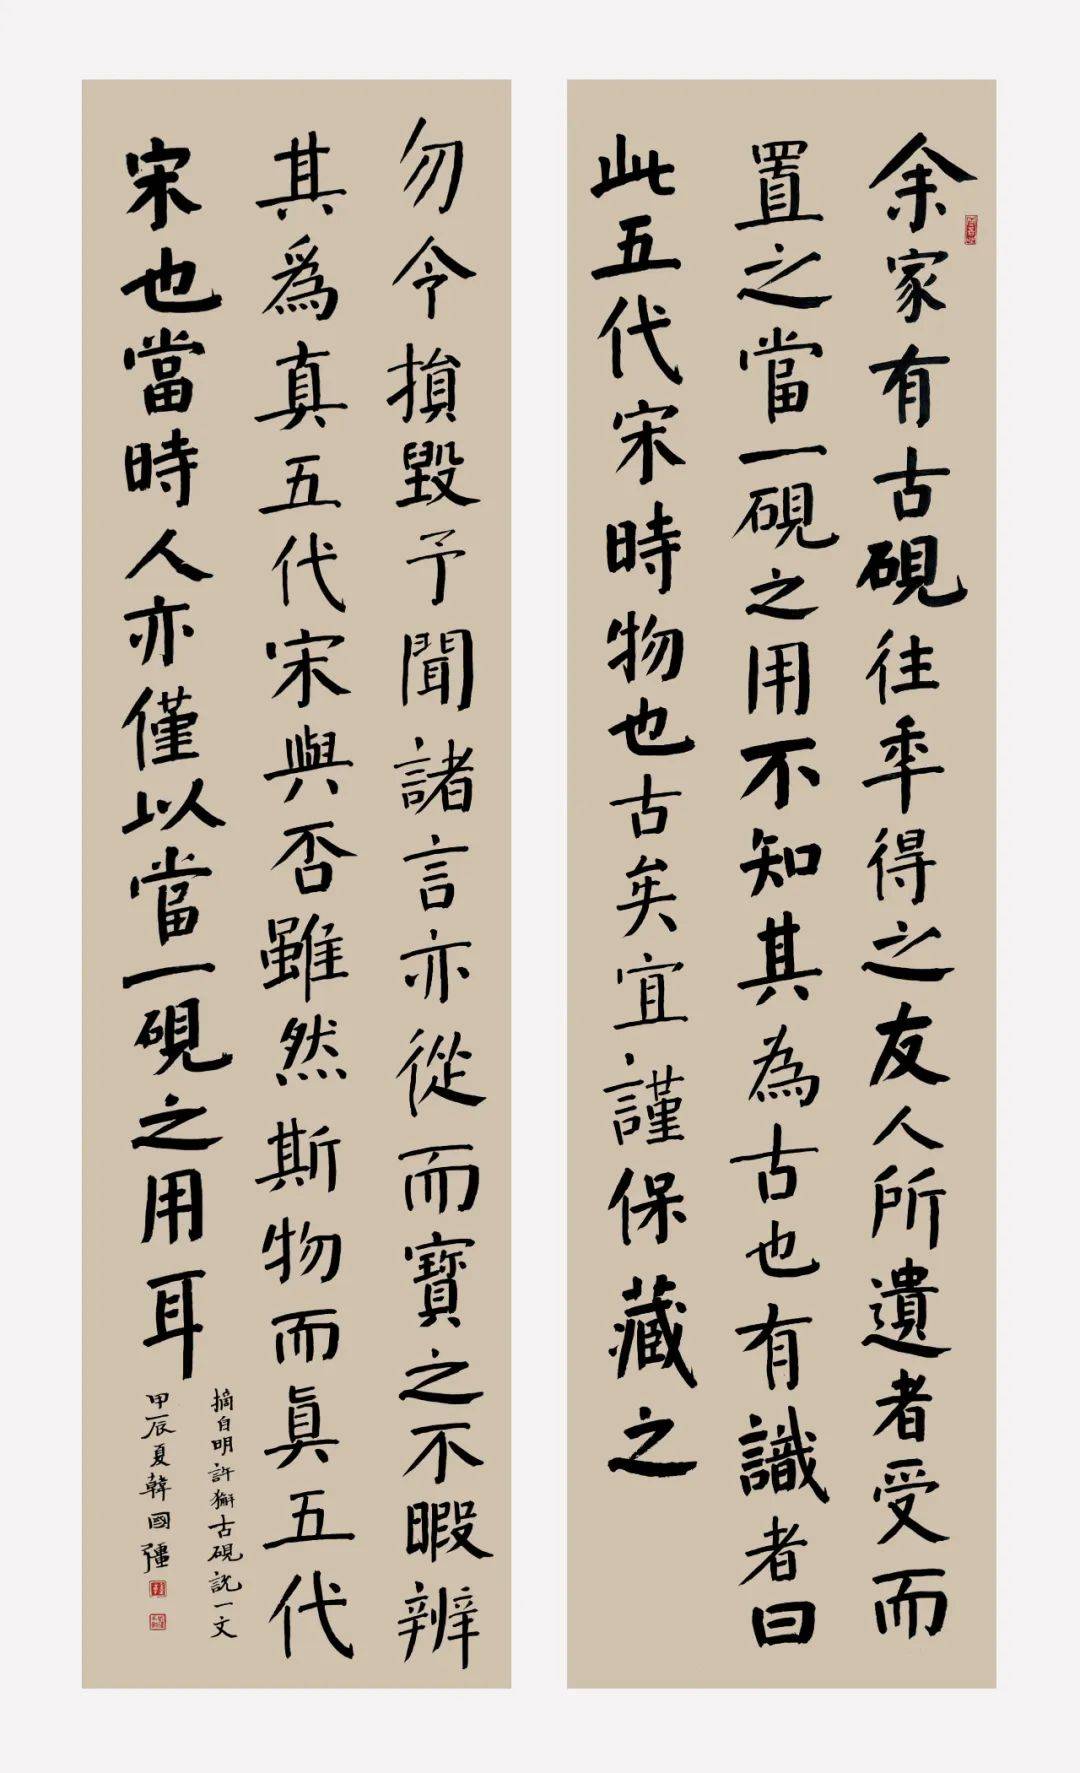 余家有古硯往年得之友人所遺者受而
置之當一硯之用不知其為古也有識者曰
此五代宋時物也古矣宜謹保藏之
勿令損毀予聞諸言亦從而寶之不暇辨
其為真五代宋與否雖然斯物而真五代
宋也當時人亦僅以當一硯之用耳
摘自明許獬古硯說一文
甲辰夏韓國彊